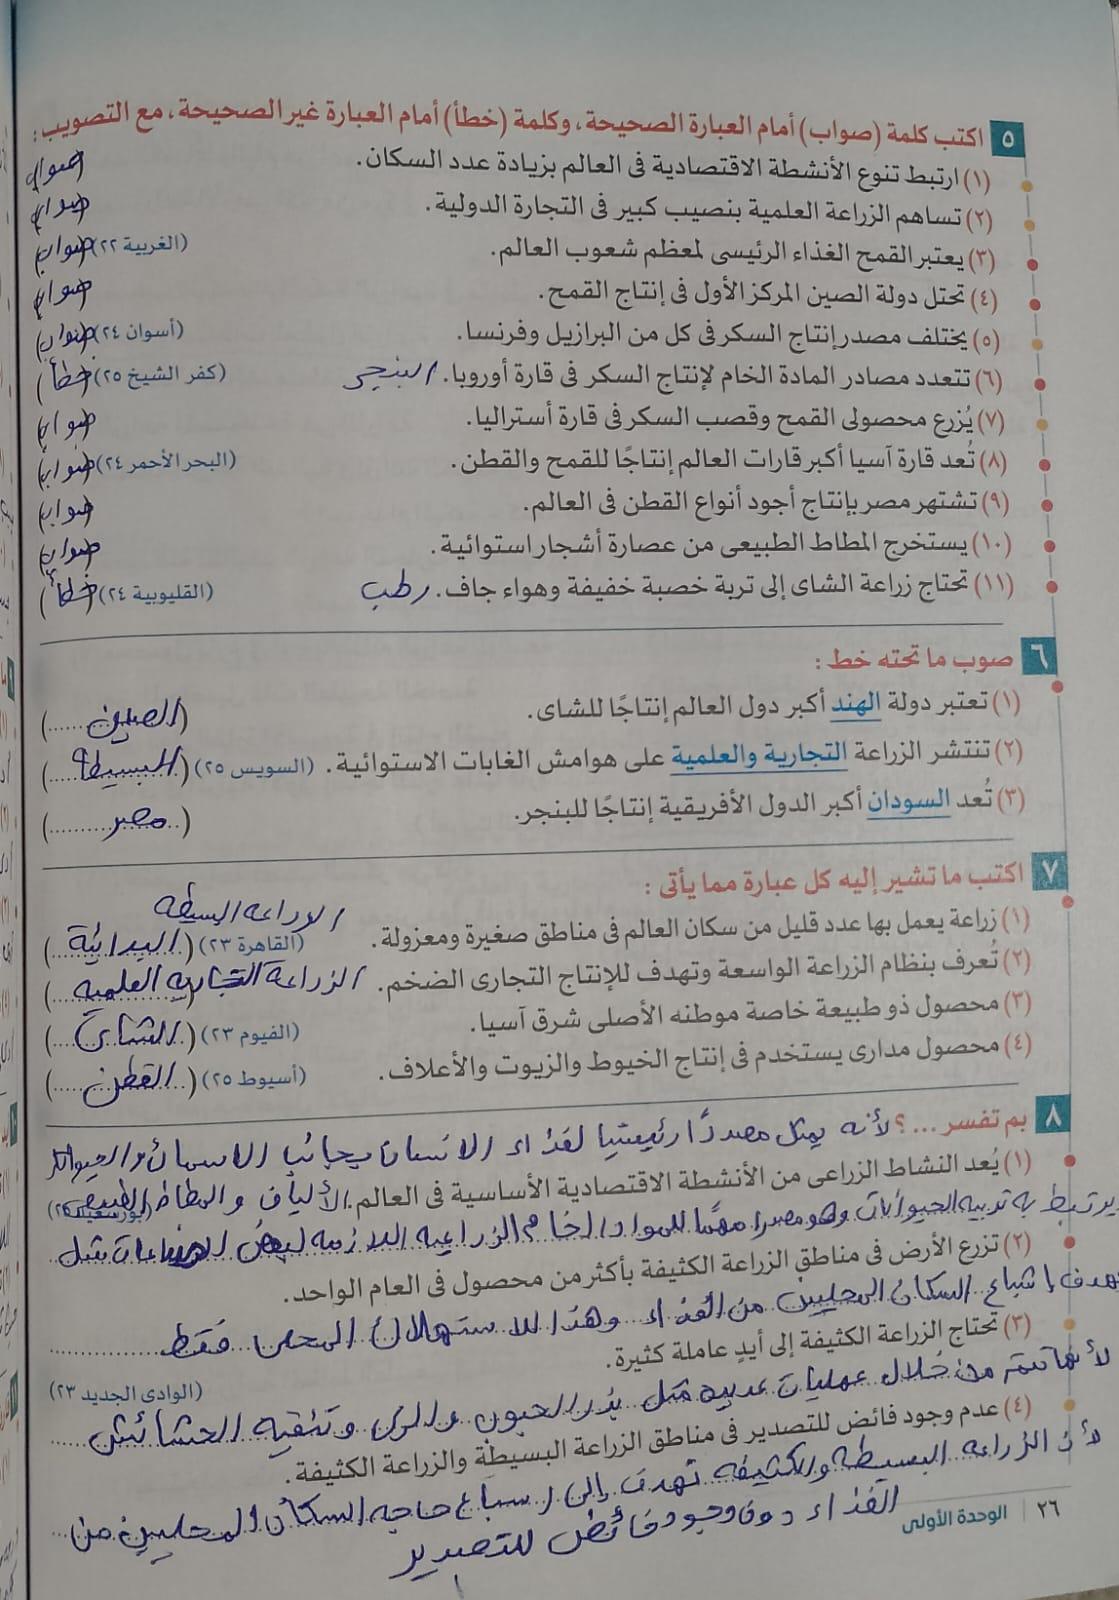 ٥ اكتب كلمة (صواب) أمام العبارة الصحيحة، وكلمة (خطأ) أمام العبارة غير الصحيحة، مع التصويب:
(١) ارتبط تنوع الأنشطة الاقتصادية فى العالم بزيادة عدد السكان. (صواب)
(٢) تساهم الزراعة العلمية بنصيب كبير فى التجارة الدولية. (صواب)
(٣) يعتبر القمح الغذاء الرئيسى لمعظم شعوب العالم. (الغربية ٢٢) (صواب)
(٤) تحتل دولة الصين المركز الأول فى إنتاج القمح. (صواب)
(٥) يختلف مصدر إنتاج السكر فى كل من البرازيل وفرنسا. (أسوان ٢٤) (صواب)
(٦) تتعدد مصادر المادة الخام لإنتاج السكر فى قارة أوروبا. البنجر (كفر الشيخ ٢٥) (خطأ)
(٧) يُزرع محصولى القمح وقصب السكر فى قارة أستراليا. (صواب)
(٨) تُعد قارة آسيا أكبر قارات العالم إنتاجًا للقمح والقطن. (البحر الأحمر ٢٤) (صواب)
(٩) تشتهر مصر بإنتاج أجود أنواع القطن فى العالم. (صواب)
(١٠) يستخرج المطاط الطبيعى من عصارة أشجار استوائية. (صواب)
(١١) تحتاج زراعة الشاى إلى تربة خصبة خفيفة وهواء جاف. رطب (القليوبية ٢٤) (خطأ)
٦ صوب ما تحته خط:
(١) تعتبر دولة الهند أكبر دول العالم إنتاجًا للشاى. (الصين)
(٢) تنتشر الزراعة التجارية والعلمية على هوامش الغابات الاستوائية. (السويس ٢٥) (البسيطة)
(٣) تُعد السودان أكبر الدول الأفريقية إنتاجًا للبنجر. (مصر)
٧ اكتب ما تشير إليه كل عبارة مما يأتى:
الزراعه البسيطه
(١) زراعة يعمل بها عدد قليل من سكان العالم فى مناطق صغيرة ومعزولة. (القاهرة ٢٣) (البدائية)
(٢) تُعرف بنظام الزراعة الواسعة وتهدف للإنتاج التجارى الضخم. الزراعة التجاريه العلميه
(٣) محصول ذو طبيعة خاصة موطنه الأصلى شرق آسيا. (الفيوم ٢٣) (الشاى)
(٤) محصول مدارى يستخدم فى إنتاج الخيوط والزيوت والأعلاف. (أسيوط ٢٥) (القطن)
٨ بم تفسر ...؟ لأنه يمثل مصدرًا رئيسيًا لغذاء الانسان بجانب الاسماك والحيوانات
(١) يُعد النشاط الزراعى من الأنشطة الاقتصادية الأساسية فى العالم. الألياف والمطاط الطبيعى (بورسعيد ٢٥)
يرتبط به تربيه الحيوانات وهو مصدرا مهمًا للمواد الخام الزراعيه اللازمه لبعض الصناعات مثل
(٢) تزرع الأرض فى مناطق الزراعة الكثيفة بأكثر من محصول فى العام الواحد.
بهدف إشباع السكان المحليين من الغذاء وهذا للاستهلاك المحلى فقط
(٣) تحتاج الزراعة الكثيفة إلى أيدٍ عاملة كثيرة. (الوادى الجديد ٢٣)
لأنها تتم من خلال عمليات عديده مثل بذر الحبوب والرى وتنقيه الحشائش
(٤) عدم وجود فائض للتصدير فى مناطق الزراعة البسيطة والزراعة الكثيفة.
لأن الزراعه البسيطه والكثيفه تهدف إلى إشباع حاجه السكان المحليين من
الغذاء دون وجود فائض للتصدير
٢٦ | الوحدة الأولى